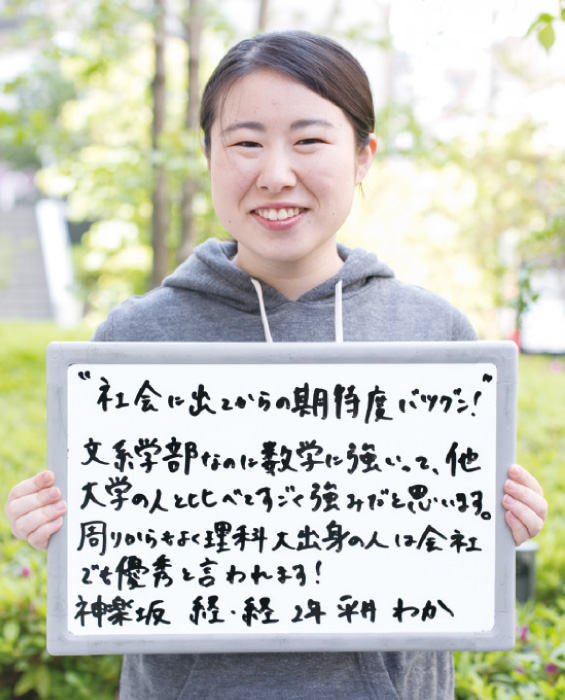 “社会に出てからの期待度バツグン!”
文系学部なのに数学に強いって、他
大学の人と比べてすごく強みだと思います。
周りからもよく理科大出身の人は会社
でも優秀と言われます!
神楽坂 経・経 2年 平井 わか